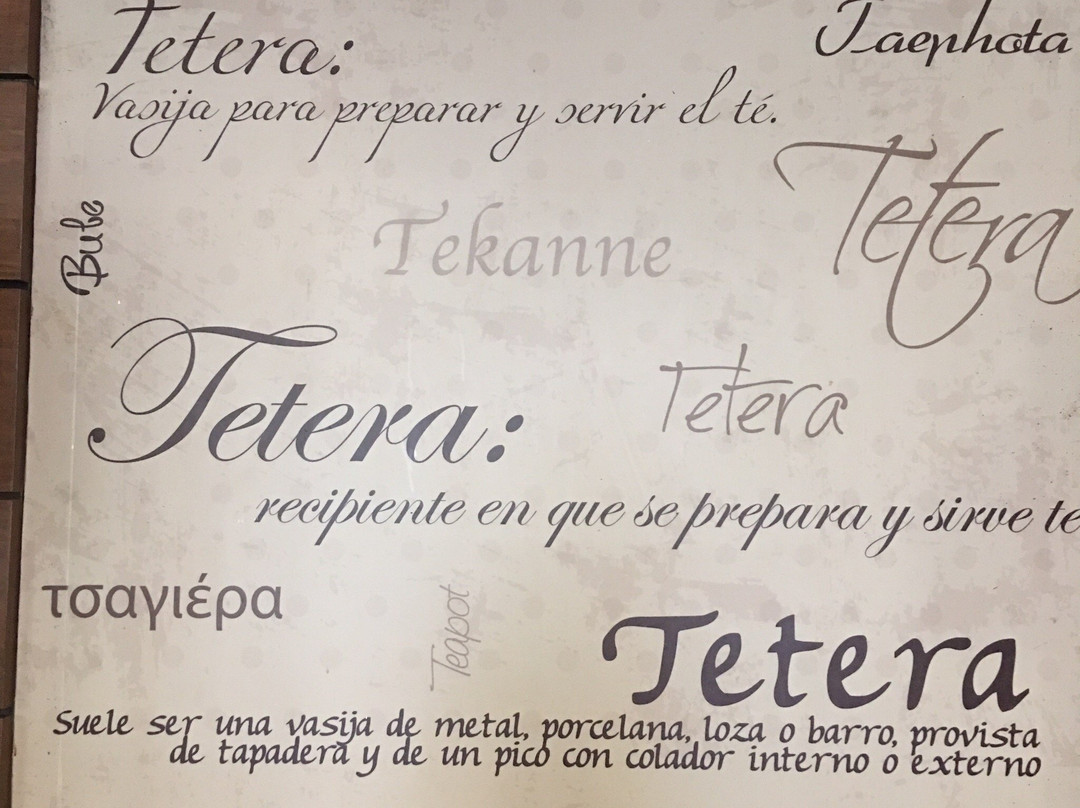 Tetera:
Taephota
Vasija para preparar y servir el té.
Tetera
Bule
Tekanne
Tetera:
Tetera
recipiente en que se prepara y sirve te
τσαγιέρα
Teapot
Tetera
Suele ser una vasija de metal, porcelana, loza o barro, provista
de tapadera y de un pico con colador interno o externo